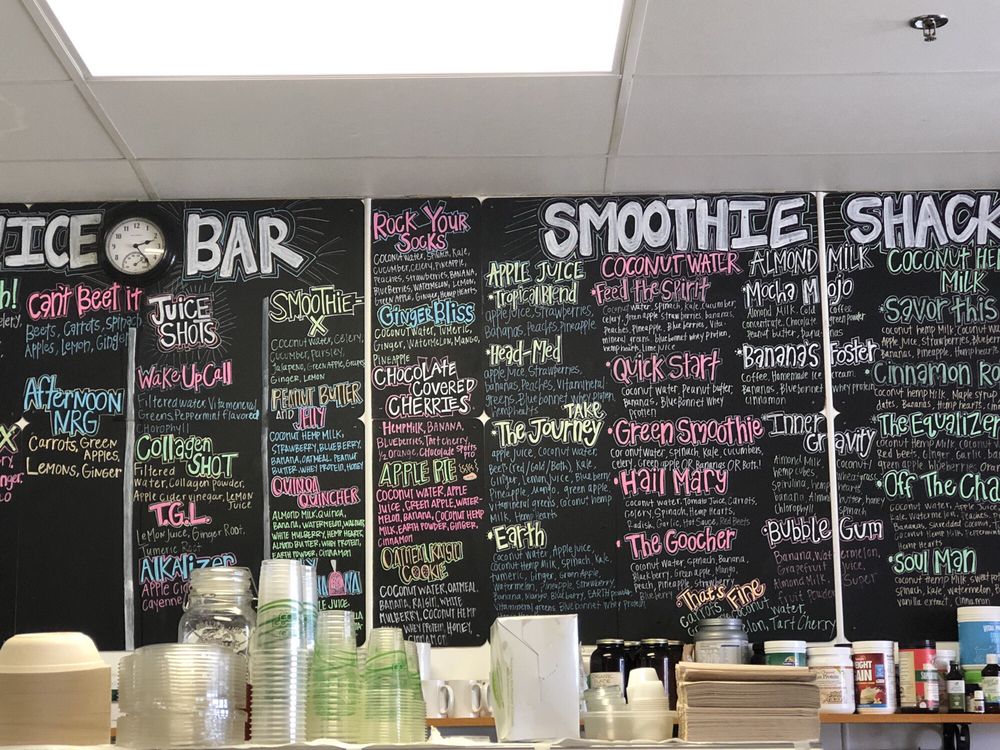 UICE BAR
h!
Can't Beet it
Beets, Carrots, Spinach
Apples, Lemon, Ginger
Afternoon
NRG
Carrots, Green
Apples,
Lemons, Ginger
Juice
Shots
Wake Up Call
Filtered water, Vitamineral
Greens, Peppermint flavored
Chorophyll
Collagen
Shot
Filtered
Water, Collagen powder,
Apple Cider vinegar, Lemon
Juice
T.G.L.
Lemon Juice, Ginger Root,
Tumeric Root
Alkalizer
Apple Cider
cayenne
Smoothie-
X
Coconut water, Celery,
Cucumber, Parsley,
Jalapeno, Green Apple,
Ginger, Lemon
Peanut Butter
and Jelly
Coconut Hemp Milk,
Strawberry, Blueberry,
Banana, Oatmeal, Peanut
Butter, Whey Protein, Honey
Quinoa
Quincher
Almond Milk, Quinoa,
Banana, Watermelon,
White Mulberry, Hemp Hearts,
Almond Butter, Whey Protein,
Earth Powder, Cinnamon
Rock Your
Socks
Coconut Water, Spinach, Kale,
Cucumber, Celery, Pineapple,
Peaches, Strawberries, Banana,
Blueberries, Watermelon, Lemon,
Green Apple, Ginger, Hemp Hearts
Ginger Bliss
Coconut Water, Tumeric,
Ginger, Watermelon, Mango,
Pineapple
Chocolate
Covered
Cherries
Hemp Milk, Banana,
Blueberries, Tart Cherry,
1/2 Orange, Chocolate
Apple Pie
Coconut Water, Apple
Juice, Green Apple, Water-
melon, Banana, Coconut Hemp
Milk, Earth Powder, Ginger,
Cinnamon
Oatmeal Raisin
Cookie
Coconut Water, Oatmeal,
Banana, Raisin, White
Mulberry, Coconut Hemp
Whey Protein, Honey,
Cinnamon
SMOOTHIE SHACK
Apple Juice
•Tropical Blend
apple juice, Strawberries,
Bananas, Peaches, Pineapple
•Head-Med
apple juice, Strawberries,
bananas, Peaches, Vitamineral
greens, Bluebonnet whey protein
hemphearts
Take
•The Journey
apple juice, Coconut Water,
Beet (red/Gold/Both), Kale,
Ginger, lemon juice, Blueberry,
Pineapple, Mango, green apple
vitamineral greens, Coconut hemp
milk, Hemp Hearts
•Earth
Coconut Water, Apple Juice,
Coconut Hemp Milk, Spinach, Kale,
tumeric, Ginger, Green Apple,
Watermelon, Blueberry, Pineapple, Strawberry
Banana, Mango, Blueberry, EARTH powder,
Vitamineral greens, Bluebonnet Whey Protein
Coconut Water
•Feed the Spirit
Coconut water, Spinach, kale, cucumber,
celery, green apple, strawberries, bananas,
Peaches, Pineapple, Blueberries, Vita-
mineral greens, bluebonnet whey protein
hemphearts, lime juice
•Quick Start
Coconut water, Peanut butter,
Bananas, Bluebonnet Whey
protien
•Green Smoothie
Coconut water, spinach, kale, cucumber,
celery, Green apple OR Bananas OR Both!
•Hail Mary
Coconut Water, Tomato Juice, Carrots,
Celery, Spinach, Hemp Hearts,
Radish, Garlic, Hot Sauce, Red Beets
•The Goocher
Coconut Water, Banana, Kale,
Blackberry, Green apple, Mango,
Pineapple, Strawberry
•That's Fine
Carrots, Coconut water,
Watermelon, Tart Cherry
Almond Milk
•Mocha Mojo
Almond Milk, Cold Coffee
Concentrate, Chocolate
Peanut butter, Bananas
•Banana's Foster
Coffee, Homemade Ice Cream,
Bananas, Bluebonnet whey protein
Cinnamon
•Inner Gravity
Almond Milk,
hemp cubes,
spirulina,
banana,
Almond butter,
Chlorophyll
•Bubble Gum
Banana, Watermelon,
Grapefruit Juice,
Almond Milk, Super
fruit Powder
Coconut Hemp
Milk
•Savor this
Coconut hemp Milk, Coconut Wa
Bananas, Pineapple, Hemphearts
•Cinnamon Ro
Coconut hemp Milk, Maple Syrup,
dates, Bananas, Hemp hearts,
•The Equalizer
Coconut Hemp Milk, Coconut Wa
Red beets, Ginger, Garlic,
green apple, blueberries,
•Off The Cha
Coconut Water, Apple Juice,
Bananas, Shredded Coconut,
Hemp Hearts
•Soul Man
Coconut Hemp Milk, Sweet pot
Spinach, kale, blueberries,
Vanilla extract, Cinnamon